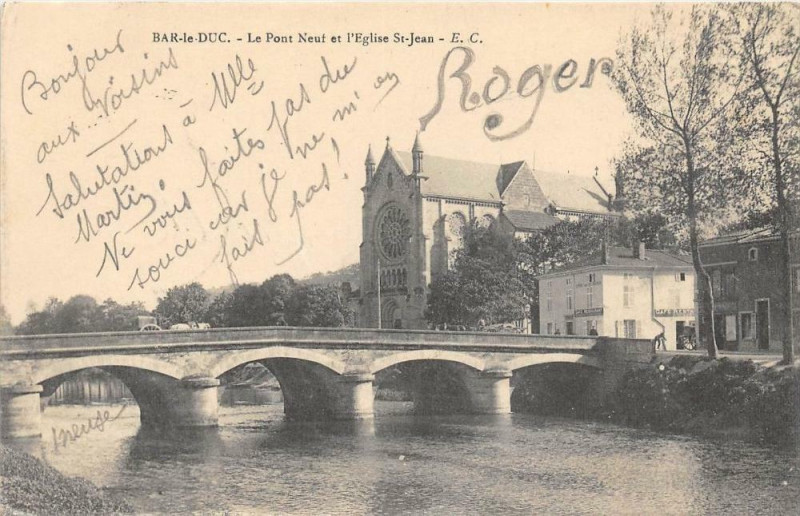 BAR-le-DUC. - Le Pont Neuf et l'Eglise St-Jean - E. C.
Bonjour
aux Voisins
Salutations à Mlle
Martin.
Ne vous faites pas du
souci car je ne m'en
fait pas!
Roger
Meuse
CAFÉ